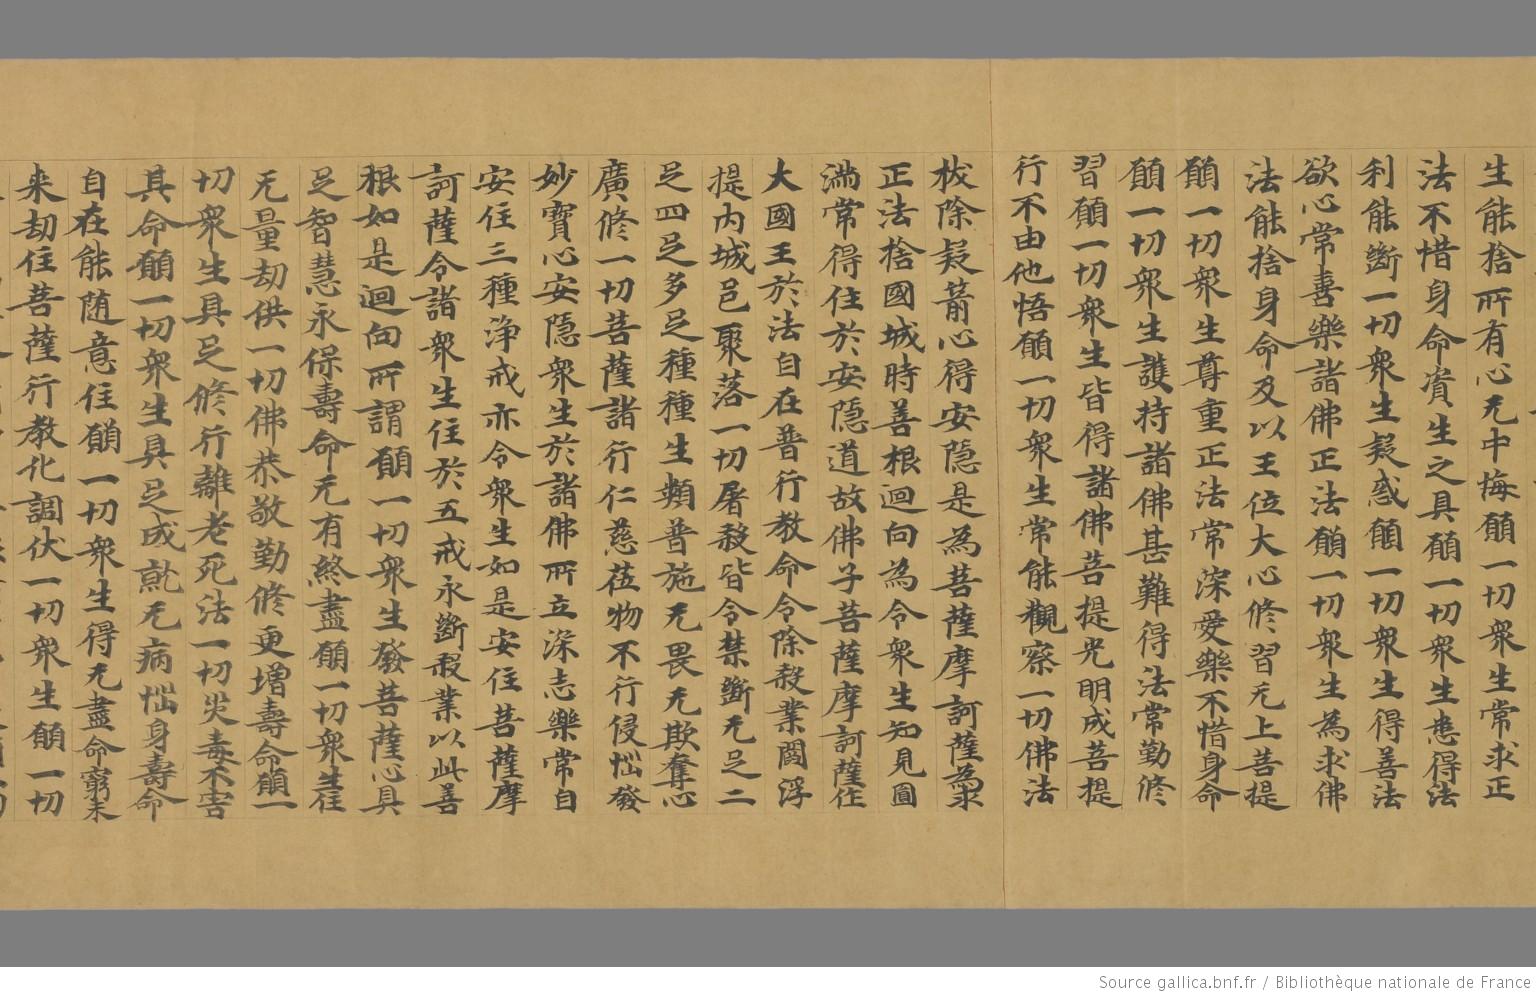 生能捨所有心无中悔願一切衆生常求正
法不惜身命資生之具願一切衆生悉得法
利能斷一切衆生疑惑願一切衆生得善法
欲心常喜樂諸佛正法願一切衆生為求佛
法能捨身命及以王位大心修習无上菩提
願一切衆生尊重正法常深愛樂不惜身命
願一切衆生護持諸佛甚難得法常勤修
習願一切衆生皆得諸佛菩提光明成菩提
行不由他悟願一切衆生常能觀察一切佛法
拔除疑箭心得安隱是為菩薩摩訶薩為求
正法捨國城時善根迴向為令衆生知見圓
滿常得住於安隱道故佛子菩薩摩訶薩作
大國王於法自在普行教命令除殺業閻浮
提内城邑聚落一切屠殺皆令禁斷无足二
足四足多足種種生類普施无畏无欺奪心
廣修一切菩薩諸行仁慈莅物不行侵惱發
妙寶心安隱衆生於諸佛所立深志樂常自
安住三種淨戒亦令衆生如是安住菩薩摩
訶薩令諸衆生住於五戒永斷殺業以此善
根如是迴向所謂願一切衆生發菩薩心具
足智慧永保壽命无有終盡願一切衆生住
无量劫供一切佛恭敬勤修更增壽命願一
切衆生具足修行離老死法一切災毒不害
其命願一切衆生具足成就无病惱身壽命
自在能随意住願一切衆生得无盡命窮未
来劫住菩薩行教化調伏一切衆生願一切
Source gallica.bnf.fr / Bibliothèque nationale de France